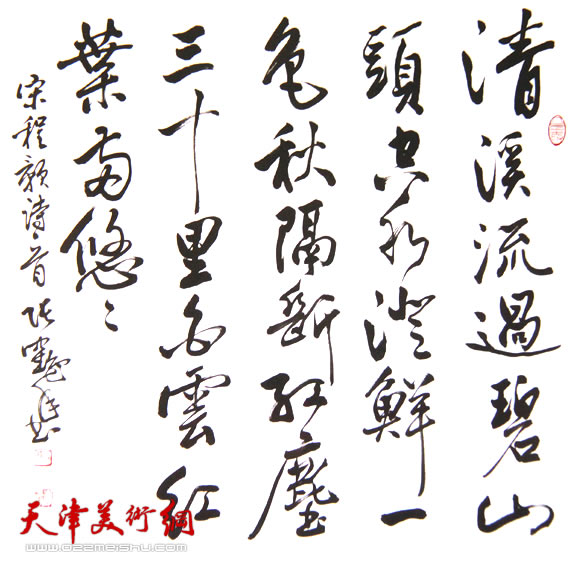 清溪流過碧山
頭空水澄鮮一
色秋隔斷紅塵
三十里白雲紅
葉兩悠々
宋程顥詩一首 張
天津美術網
www.022meishu.com